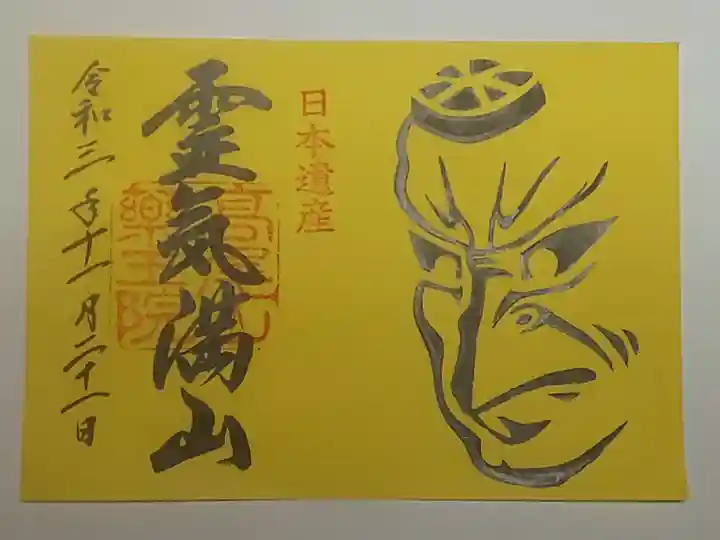 日本遺産
霊氣満山
高尾山
藥王院
令和三年十一月二十一日